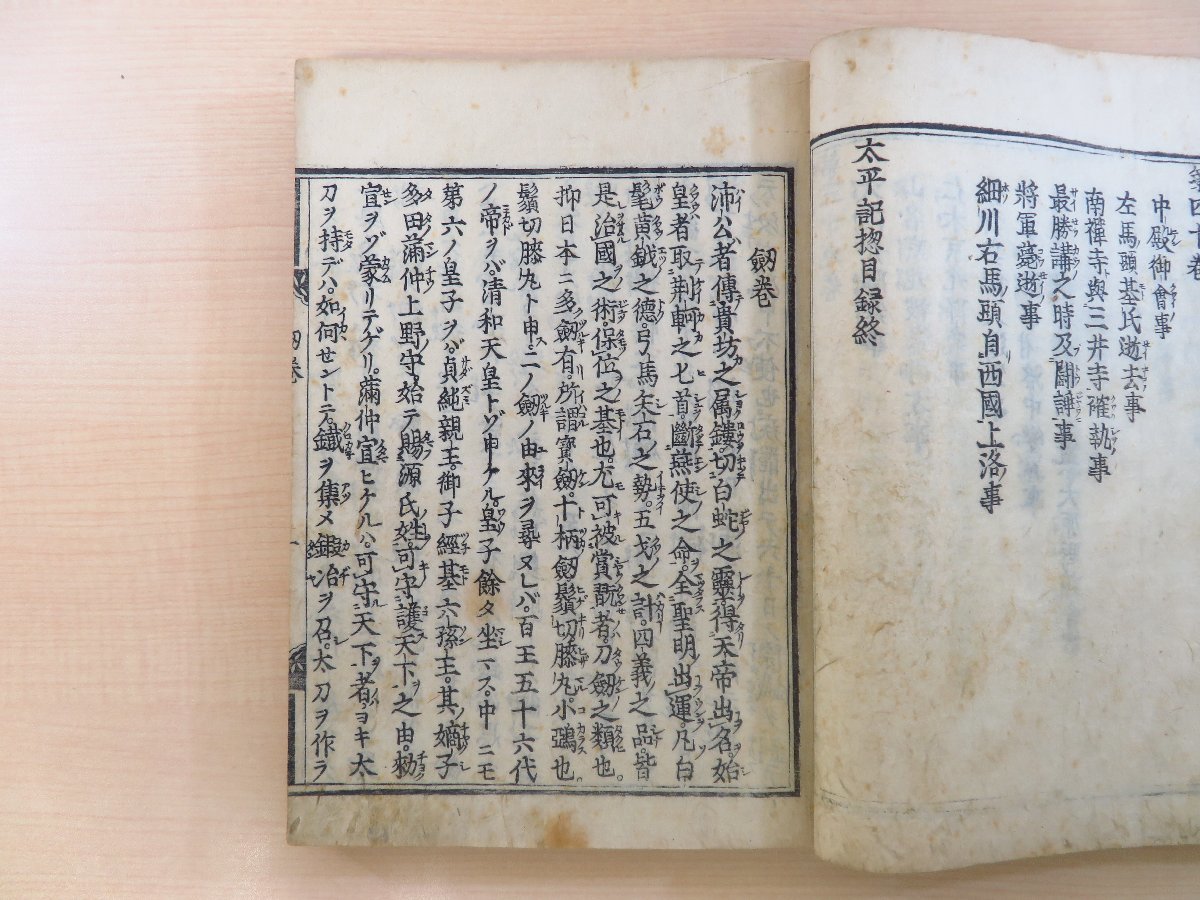 第四十卷
中殿御會事
左馬頭基氏逝去事
南禪寺與三井寺確執事
最勝講之時及鬪諍事
將軍薨逝事
細川右馬頭自西國上洛事
太平記惣目録終
劔卷
沛公者傳貴坊之属鏤切白蛇之靈得天帝出名始
皇者取荆軻之匕首斷燕使之命全聖明出運凡白
髦黄鉞之德弓馬矢石之勢五戈之計四義之品皆
是治國之術保位之基也尤可被賞翫者刀劔之類也
抑日本ニ多劔有所謂寳劔十柄劔鬚切膝丸小鵄也
鬚切膝丸ト申二ノ劔ノ由來ヲ尋ヌレバ百王五十六代
ノ帝ヲバ清和天皇トゾ申ケル皇子餘タ坐マス中ニモ
第六ノ皇子ヲバ貞純親王御子經基六孫王其ノ嫡子
多田滿仲上野守始テ賜源氏姓可守護天下之由勅
宣ヲゾ蒙リテゲリ滿仲宣ヒケルハ可守天下者ヨキ太
刀ヲ持デハ如何セントテ鐵ヲ集メ鍛冶ヲ召太刀ヲ作ラ
劔卷